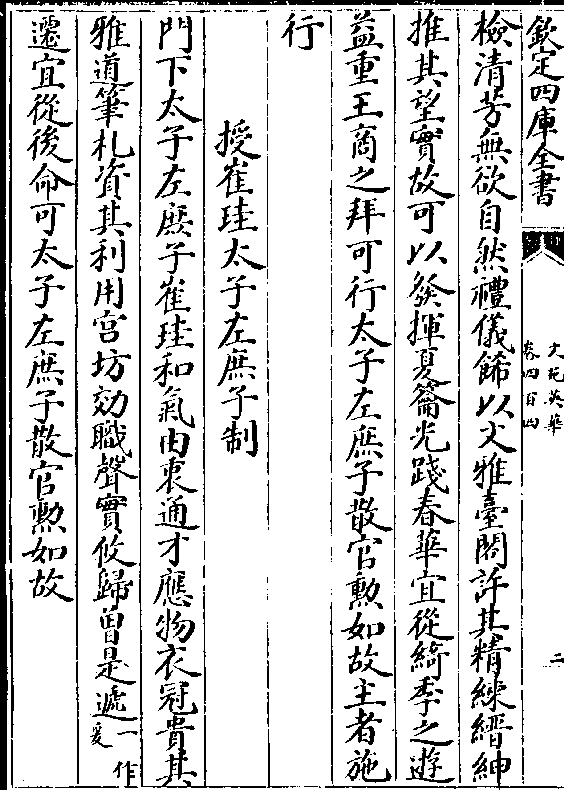 欽定四庫全書
文苑英華
卷四百四
二
檢清芳無欲自然禮儀飾以文雅臺閣許其精練縉紳
推其望實故可以發揮夏籥光踐春華宜從綺季之遊
益重王商之拜可行太子左庶子散官勲如故主者施
行
授崔珪太子左庶子制
門下太子左庶子崔珪和氣由衷通才應物衣冠貴其
雅道筆札資其利用宫坊効職聲實攸歸曽是遞一作爰
遷宜從後命可太子左庶子散官勲如故